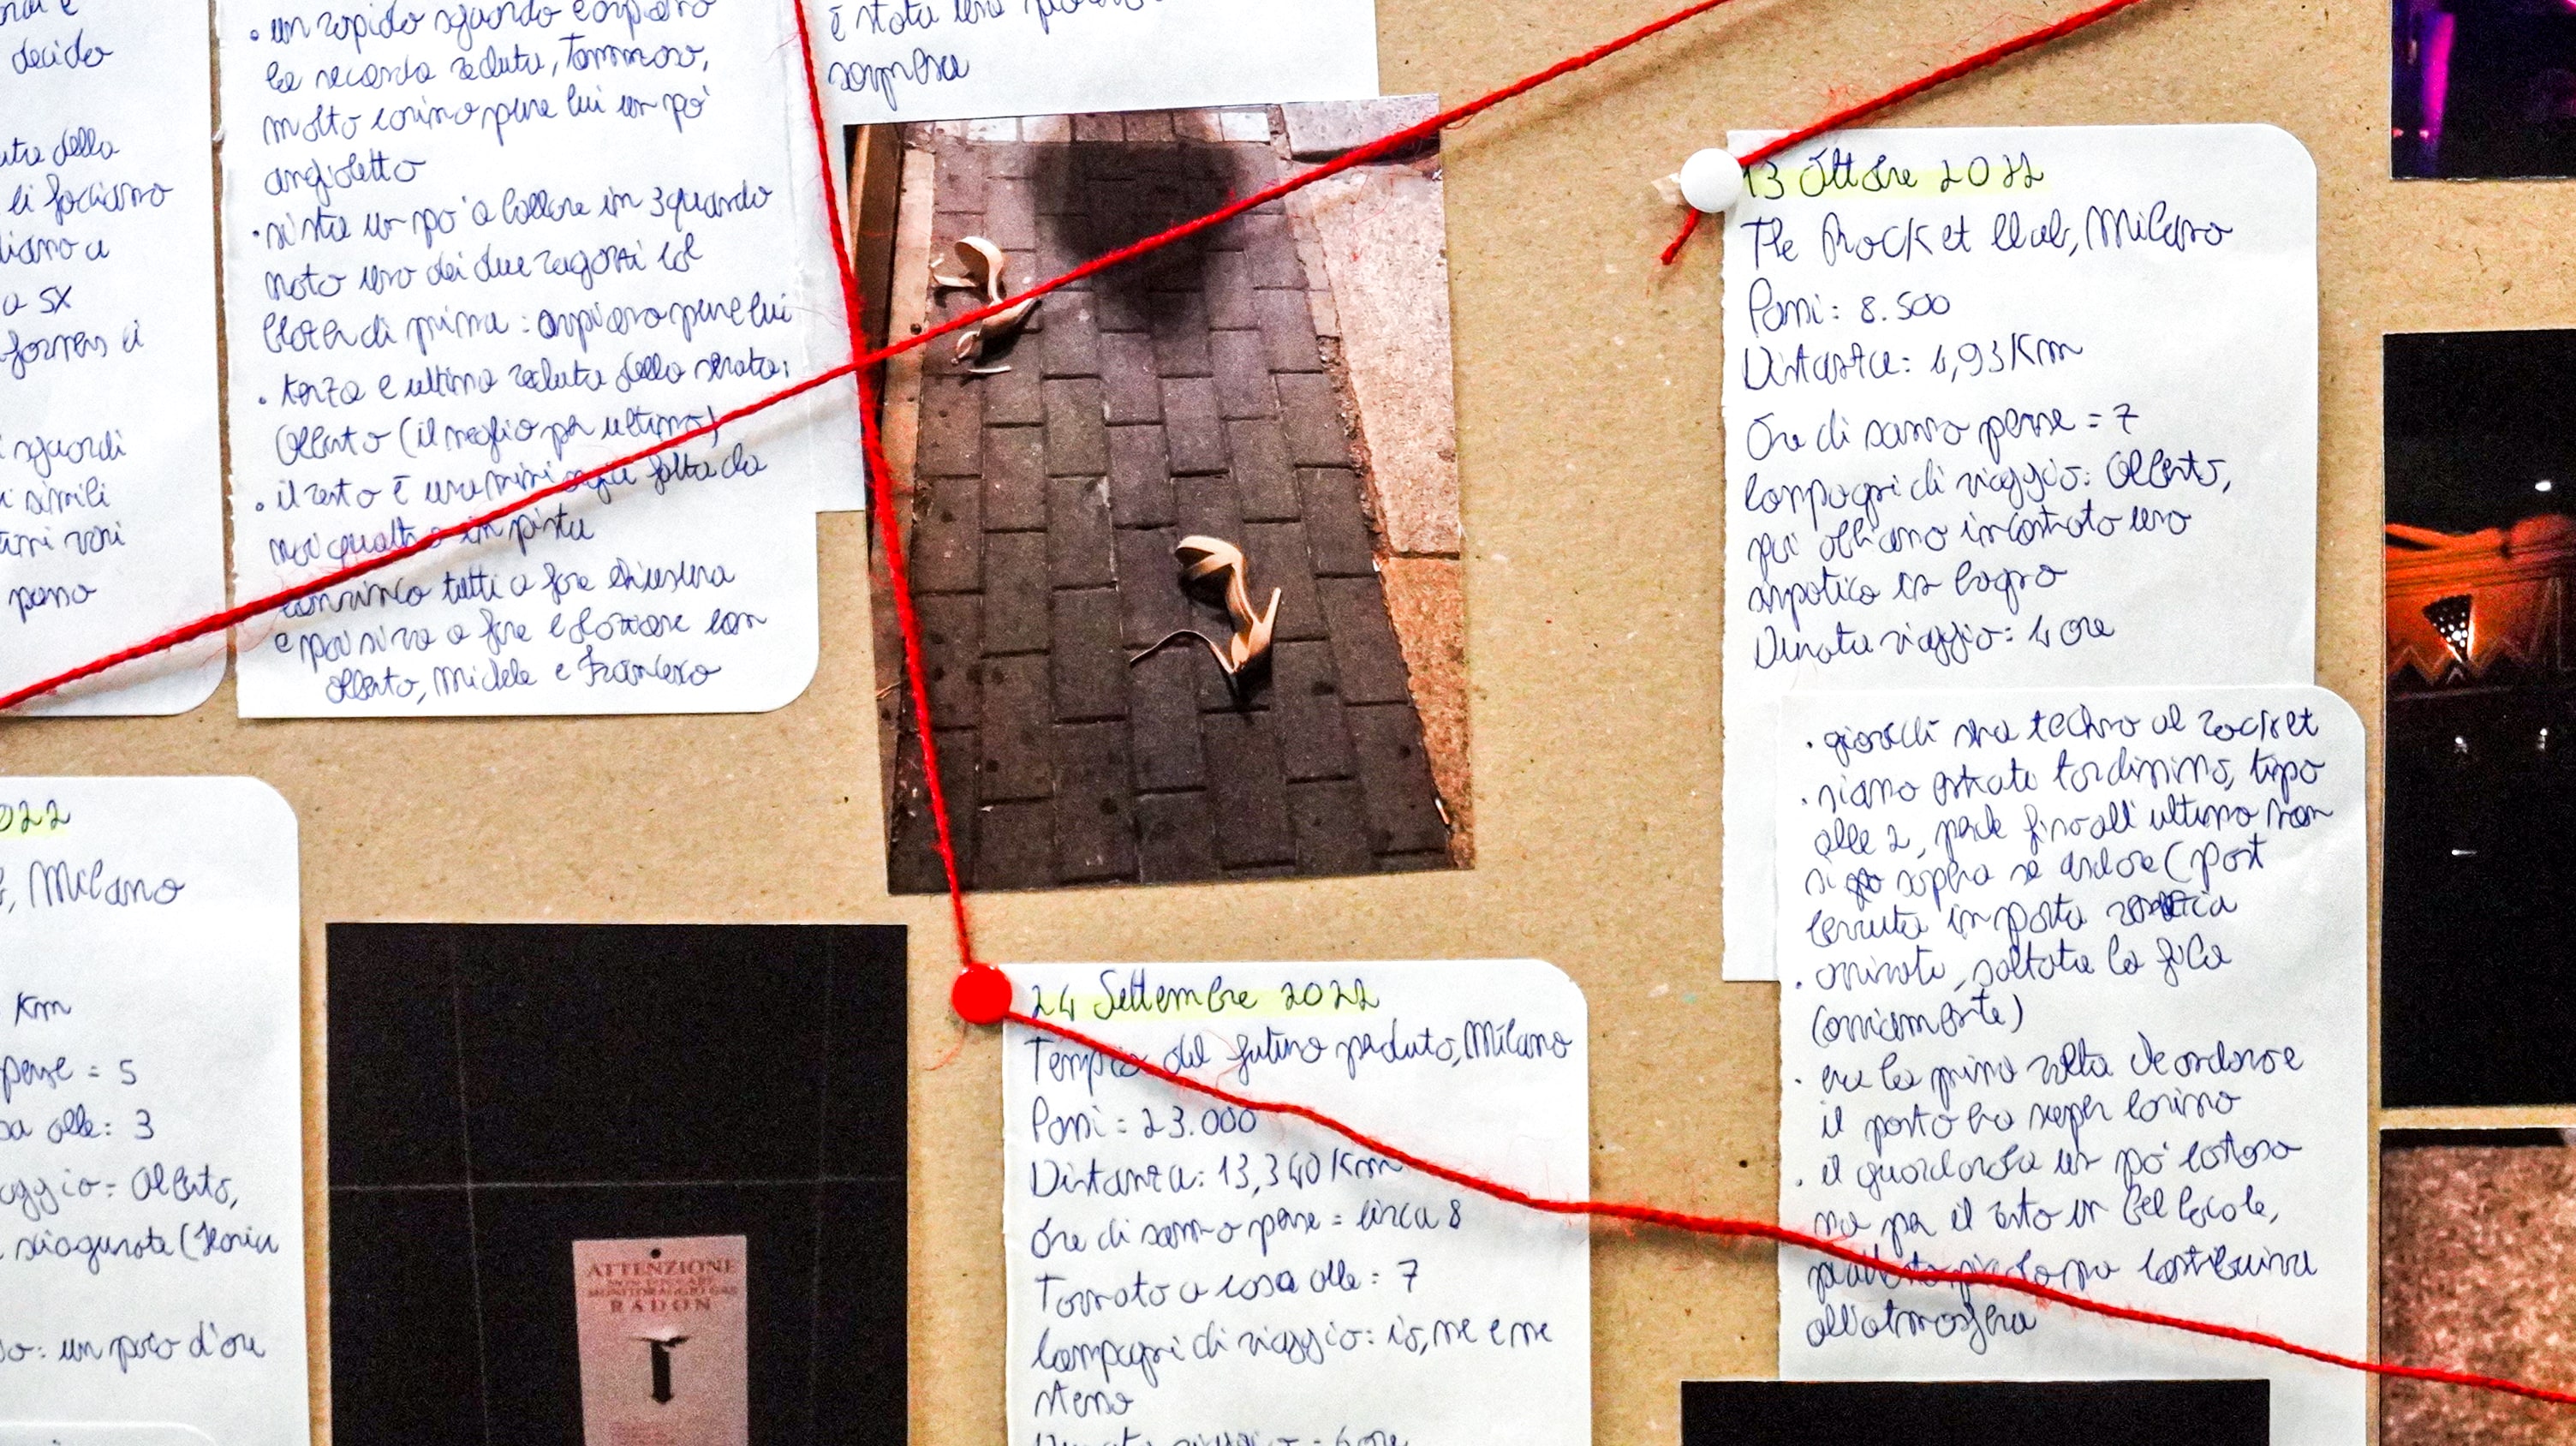 decido
della
li facciamo
a 5x
sguardi
simili
vari
• un rapido sguardo e arpiono
la seconda seduta, Tommaso,
molto carino pure lui un po'
angioletto
• si sta un po' a ballare in 3 quando
noto uno dei due ragazzi col
di prima: arpiono pure lui
• terza e ultima seduta della serata:
Alberto (il meglio per ultimo)
• il resto è una mini orgia fatta da
noi quattro in pista
convinco tutti a fare chiusura
e poi si va a fare colazione con
Alberto, Michele e Francesco
è stata una
sorpresa
13 Ottobre 2022
The Rocket Club, Milano
Passi: 8.500
Distanza: 4,93 Km
Ore di sonno perse = 7
Compagni di viaggio: Alberto,
poi abbiamo incontrato uno
simpatico in bagno
Durata viaggio: 4 ore
• giovedì sera techno al rocket
• siamo entrati tardissimo, tipo
alle 2, perché fino all'ultimo non
si sapeva se andare (post
cenuta in porta
• arrivati, saltata la fila
(ovviamente)
• era la prima volta che andavo e
il posto era super carino
• il guardaroba un po' costoso
ma per il resto un bel locale,
piccolo ma contribuiva
all'atmosfera
2022
, Milano
Km
perse = 5
alle: 3
Alberto,
un paio d'ore
ATTENZIONE
NON TOCCARE
MONITORAGGIO GAS
RADON
24 Settembre 2022
Tempio del futuro perduto, Milano
Passi = 23.000
Distanza: 13,340 Km
Ore di sonno perse = circa 8
Tornato a casa alle: 7
Compagni di viaggio: io, me e me
stesso
Durata viaggio = 6 ore